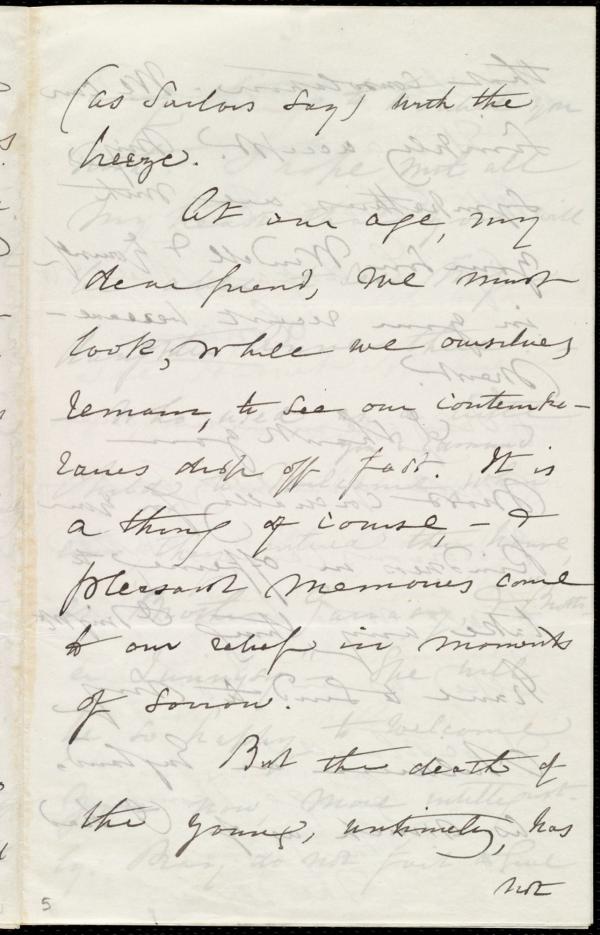 (as sailors say) with the
breeze.
At our age, my
dear friend, we must
look, while we ourselves
remain, to see our contempo-
raries drop off fast. It is
a thing of course, – &
pleasant memories come
to our relief in moments
of sorrow.
But the death of
the young, untimely, has
not
5